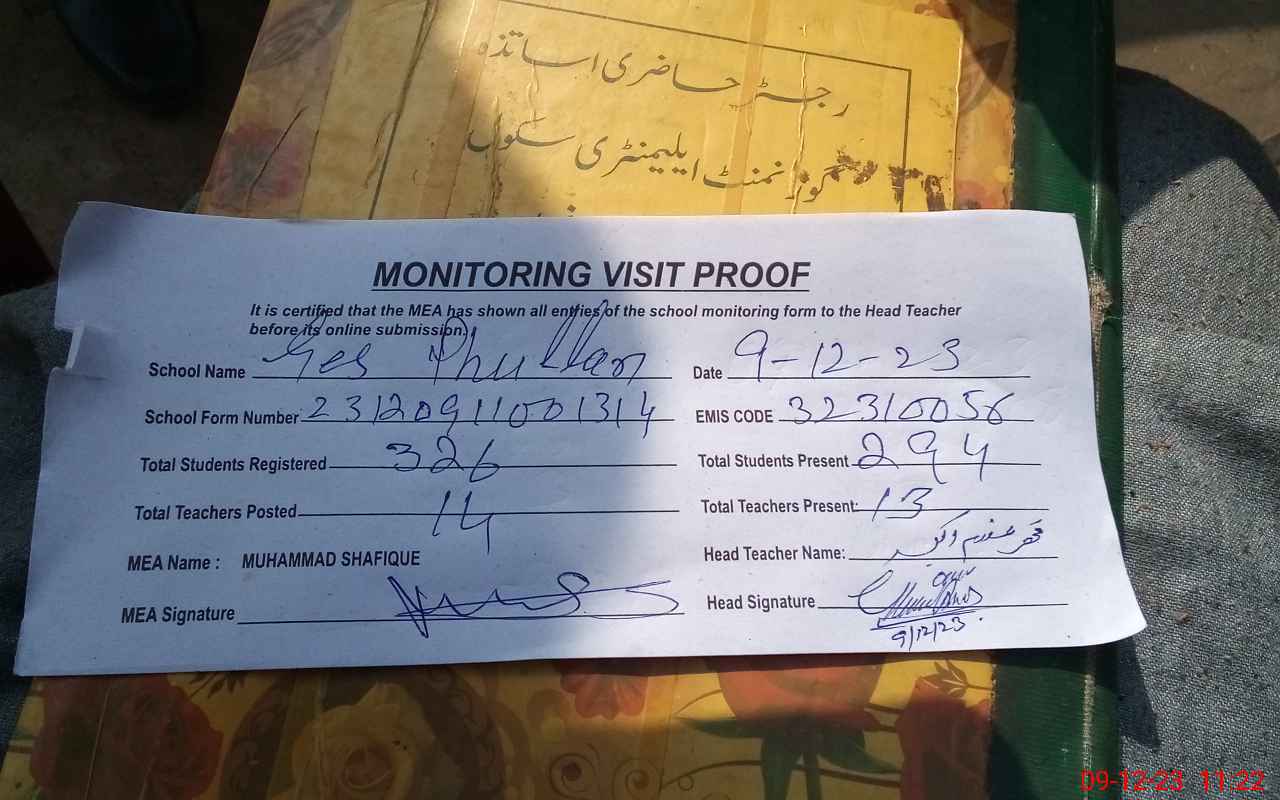 رجسٹر حاضری اساتذہ
گورنمنٹ ایلیمنٹری سکول
MONITORING VISIT PROOF
It is certified that the MEA has shown all entries of the school monitoring form to the Head Teacher
before its online submission.
School Name Ges Phullan Date 9-12-23
School Form Number 23120911001314 EMIS CODE 32310056
Total Students Registered 326 Total Students Present 294
Total Teachers Posted 14 Total Teachers Present: 13
MEA Name : MUHAMMAD SHAFIQUE Head Teacher Name:
MEA Signature Head Signature
9/12/23
09-12-23 11:22